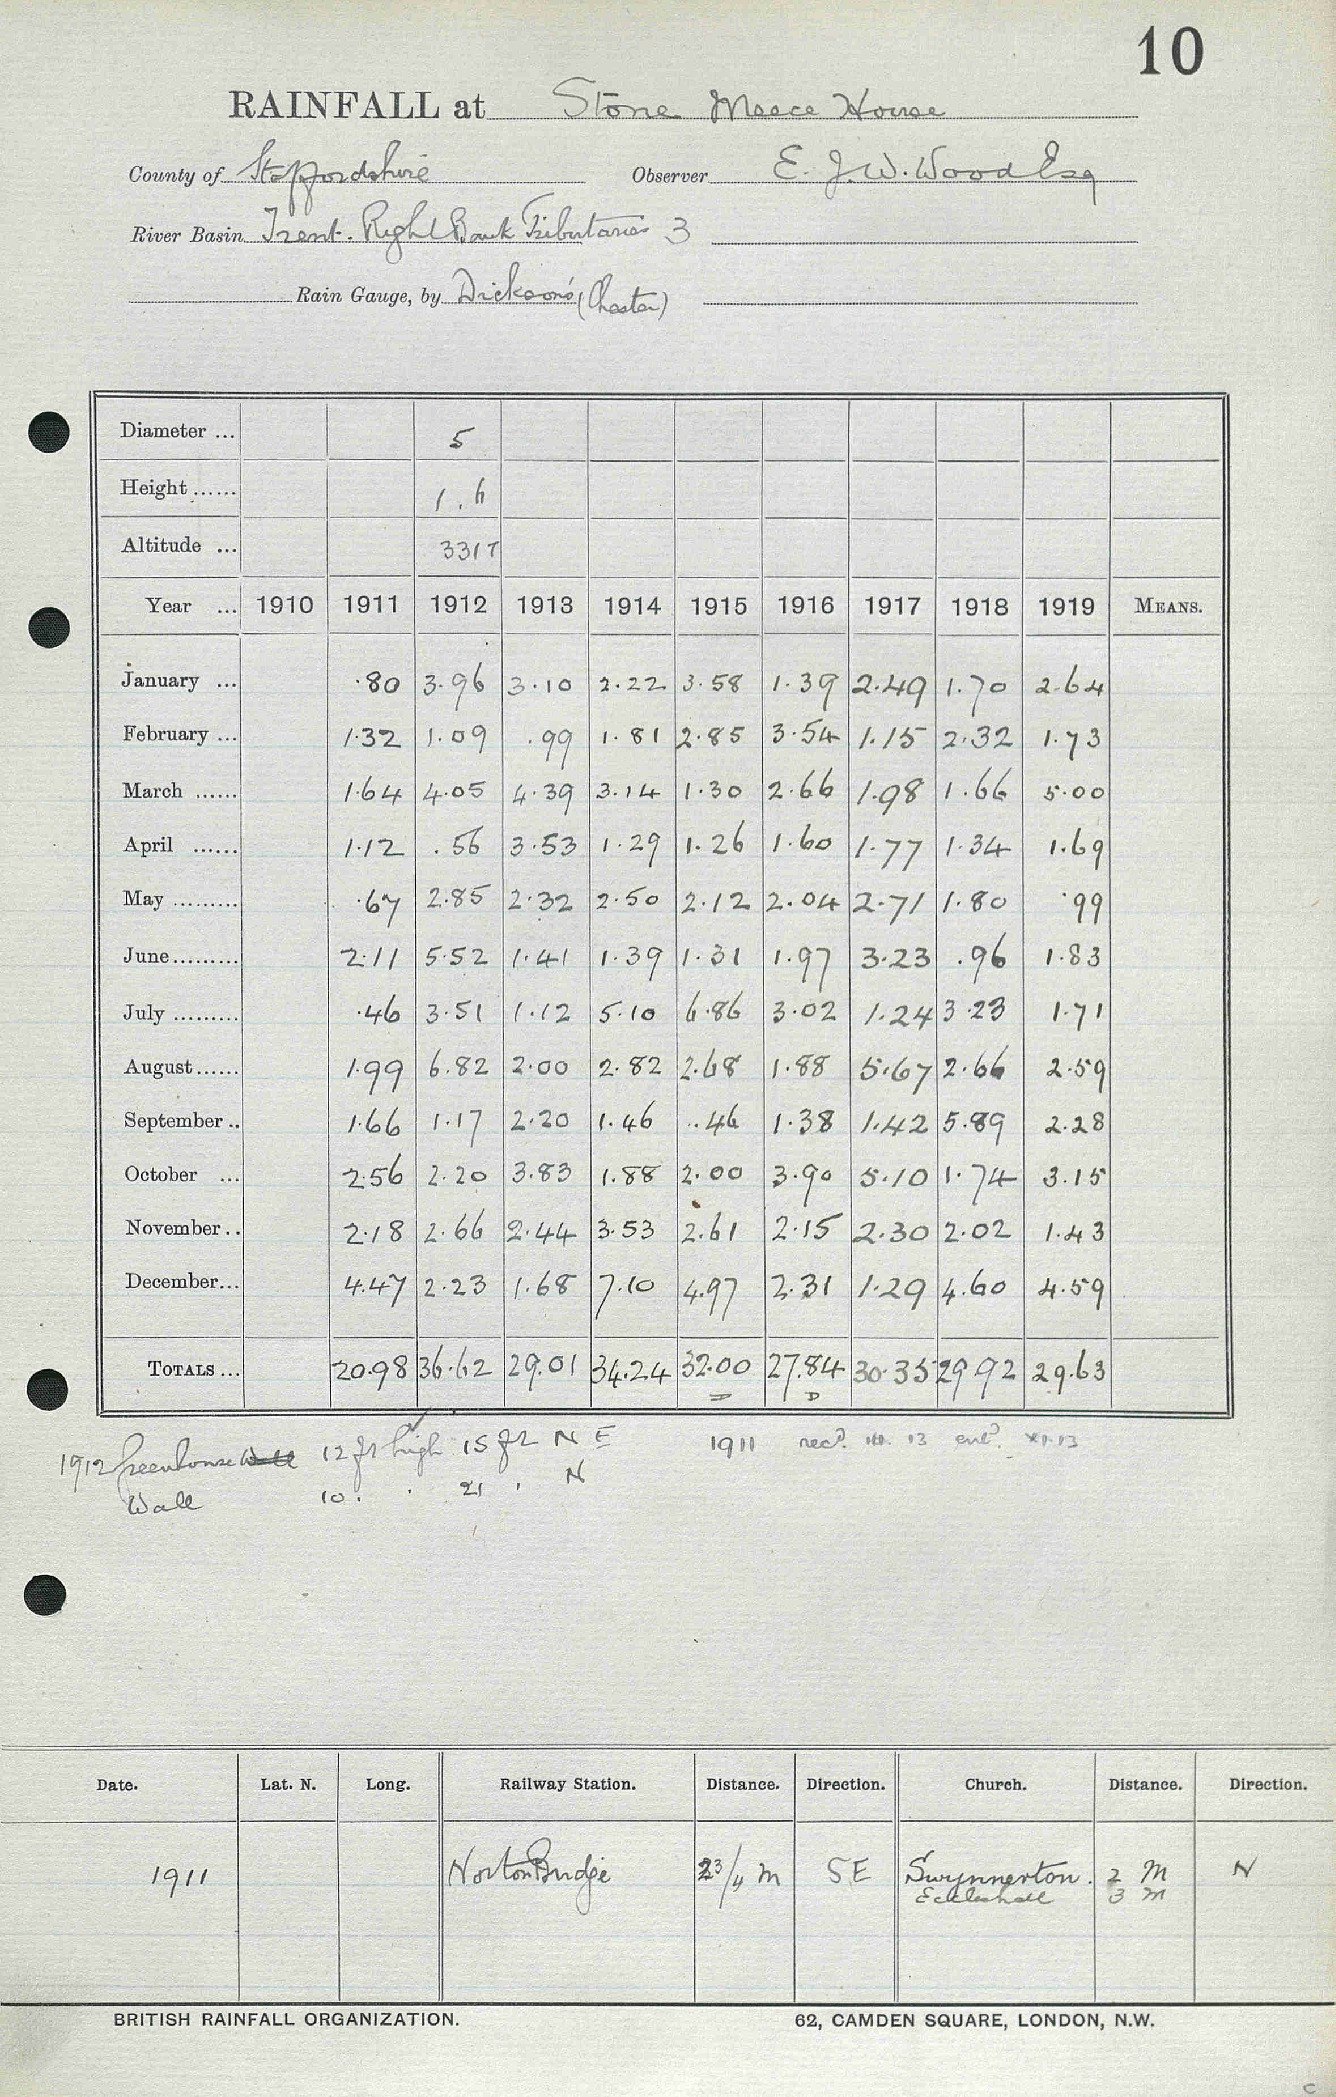 10
RAINFALL at Stone Meece House
County of Staffordshire Observer E. J. W. Wood Esq
River Basin Trent. Right Bank Tributaries 3
Rain Gauge, by Dickson's (Chester)
Diameter ... 5
Height ...... 1.6
Altitude ... 331T
Year ... 1910 1911 1912 1913 1914 1915 1916 1917 1918 1919 MEANS.
January ... ·80 3·96 3·10 2·22 3·58 1·39 2·49 1·70 2·64
February ... 1·32 1·09 ·99 1·81 2·85 3·54 1·15 2·32 1·73
March ...... 1·64 4·05 4·39 3·14 1·30 2·66 1·98 1·66 5·00
April ...... 1·12 ·56 3·53 1·29 1·26 1·60 1·77 1·34 1·69
May ......... ·67 2·85 2·32 2·50 2·12 2·04 2·71 1·80 ·99
June......... 2·11 5·52 1·41 1·39 1·31 1·97 3·23 ·96 1·83
July ......... ·46 3·51 1·12 5·10 6·86 3·02 1·24 3·23 1·71
August...... 1·99 6·82 2·00 2·82 2·68 1·88 5·67 2·66 2·59
September .. 1·66 1·17 2·20 1·46 ·46 1·38 1·42 5·89 2·28
October ... 2·56 2·20 3·83 1·88 2·00 3·90 5·10 1·74 3·15
November .. 2·18 2·66 2·44 3·53 2·61 2·15 2·30 2·02 1·43
December... 4·47 2·23 1·68 7·10 4·97 2·31 1·29 4·60 4·59
TOTALS ... 20·98 36·62 29·01 34·24 32·00 27·84 30·35 29·92 29·63
1912 Greenhouse Wall 12 ft high 15 ft N E 1911 recd. 13 entd. XI.13
Wall 10 . . 21 . N
Date. Lat. N. Long. Railway Station. Distance. Direction. Church. Distance. Direction.
1911 Norton Bridge 2 3/4 m SE Swynnerton. 2 M N
Eccleshall 3 m
BRITISH RAINFALL ORGANIZATION. 62, CAMDEN SQUARE, LONDON, N.W.